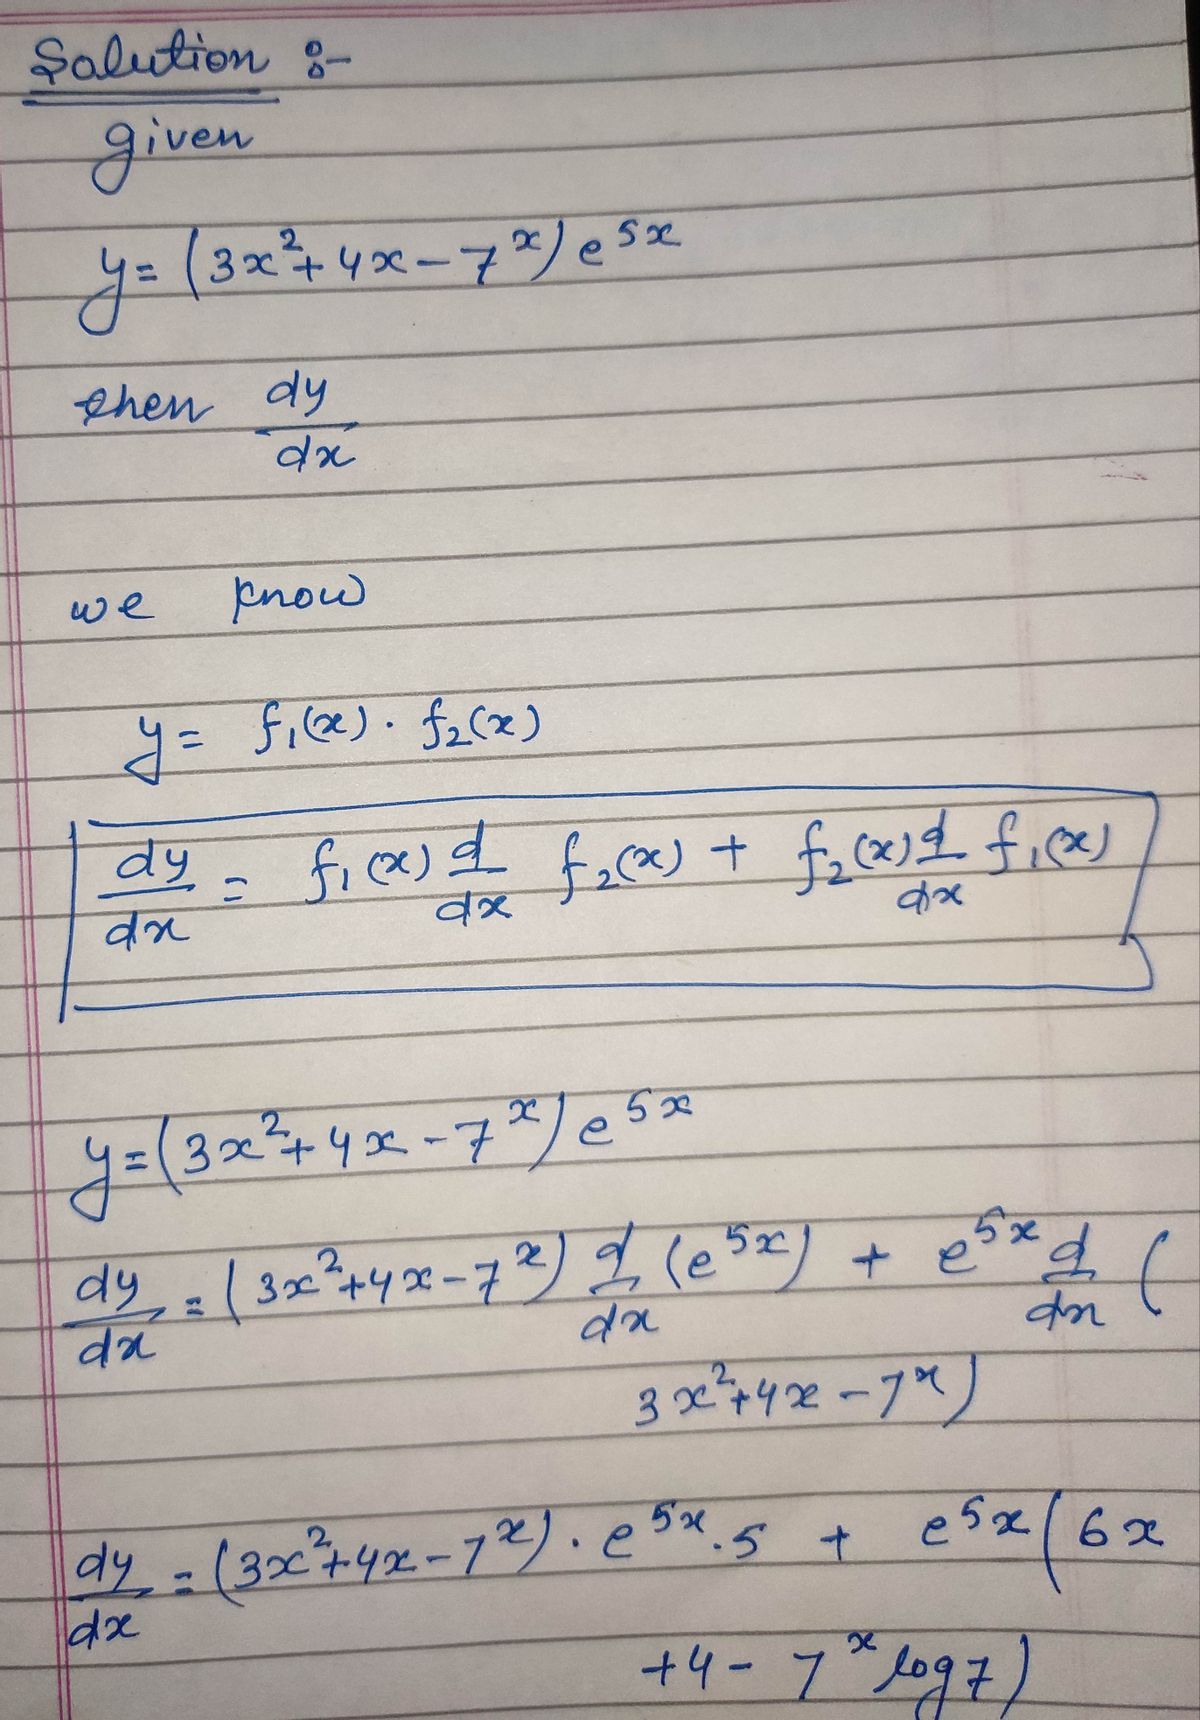 Solution :-
given
y = (3x² + 4x - 7ˣ) e⁵ˣ
then dy/dx
we know
y = f₁(x) · f₂(x)
dy/dx = f₁(x) d/dx f₂(x) + f₂(x) d/dx f₁(x)
y = (3x² + 4x - 7ˣ) e⁵ˣ
dy/dx = (3x² + 4x - 7ˣ) d/dx (e⁵ˣ) + e⁵ˣ d/dx (
3x² + 4x - 7ˣ)
dy/dx = (3x² + 4x - 7ˣ) · e⁵ˣ · 5 + e⁵ˣ (6x
+4 - 7ˣ log 7)